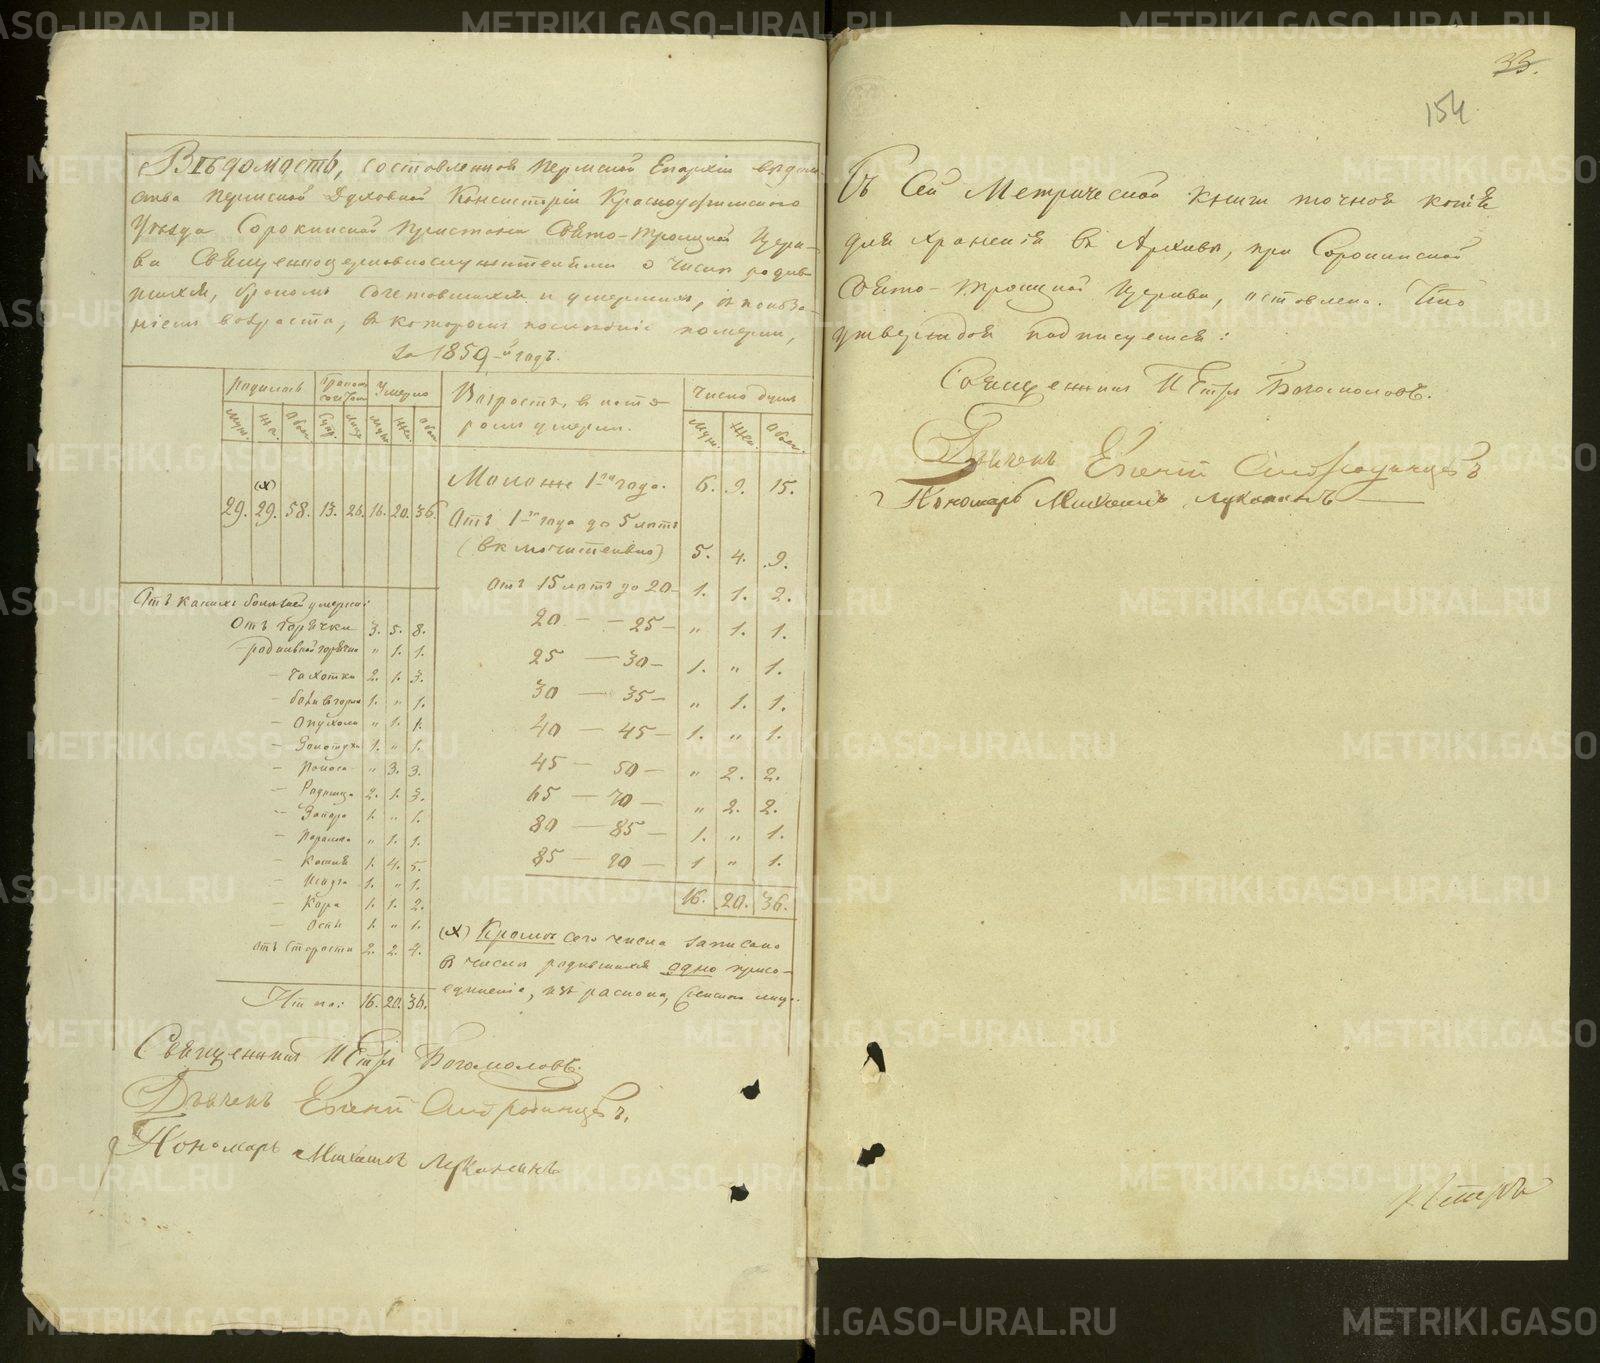 Вѣдомость, составленная Пермской Епархіи вѣдом-
ства Пермской Духовной Консисторіи Красноуфимского
Уѣзда Сорокинской Пристани Свято-Троицкой Церк-
ви Священноцерковнослужителями о числѣ родив-
шихся, бракомъ сочетавшихся и умершихъ, съ показа-
ніемъ возраста, въ которомъ последніе померли,
за 1859-й годъ.
Родилось Бракомъ сочетан. Умерло Возрастъ, въ кото-
ромъ умерли. Число душъ
Муж. Жен. Обоего Супр. Лицъ Муж. Жен. Обоего Муж. Жен. Обоего
(х)
29. 29. 58. 13. 26. 16. 20. 36.
Моложе 1-го года. 6. 9. 15.
Отъ 1-го года до 5 лѣтъ
(включительно) 5. 4. 9.
Отъ 15 лѣтъ до 20 – 1. 1. 2.
20 – – 25 – „ 1. 1.
25 – 30 – 1. „ 1.
30 – 35 – „ 1. 1.
40 – 45 – 1. „ 1.
45 – 50 – „ 2. 2.
65 – 70 – „ 2. 2.
80 – 85 – 1. „ 1.
85 – 90 – 1 „ 1.
16. 20. 36.
(х) Кромѣ сего числа записано
въ числѣ родившихся одно присо-
единеніе, изъ раскола, женска лица.
Отъ какихъ болѣзней умерли:
Отъ горячки 3. 5. 8.
родильной горячки „ 1. 1.
– Чахотки 2. 1. 3.
– боли въ горлѣ 1. „ 1.
– Опухоли „ 1. 1.
– Золотухи 1. „ 1.
– Поноса „ 3. 3.
– Родимца 2. 1. 3.
– Запора 1. „ 1.
– „ 1. 1.
– Кашля 1. 4. 5.
– 1. „ 1.
– Кора 1. 1. 2.
– Оспы 1. „ 1.
отъ Старости 2. 2. 4.
Итого: 16. 20. 36.
Священникъ Петръ Богомоловъ.
Дьяченъ Евгений
Пономарь Михаилъ Луканинъ
33.
154
Съ Сей Метрической книги точная копія
для храненія въ Архивѣ, при Сорокинской
Свято-Троицкой Церкви, оставлена. Что
утверждая подписуемся:
Священникъ Петръ Богомоловъ.
Дьяченъ Евгений
Пономарь Михаилъ Луканинъ
METRIKI.GASO-URAL.RU